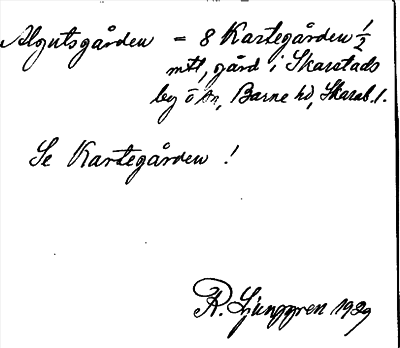 Algutsgården = 8 Kartegården 1/2
mtl, gård i Skarstads
by o sn, Barne hd, Skarab. l.
Se Kartegården !
R. Ljunggren 1929